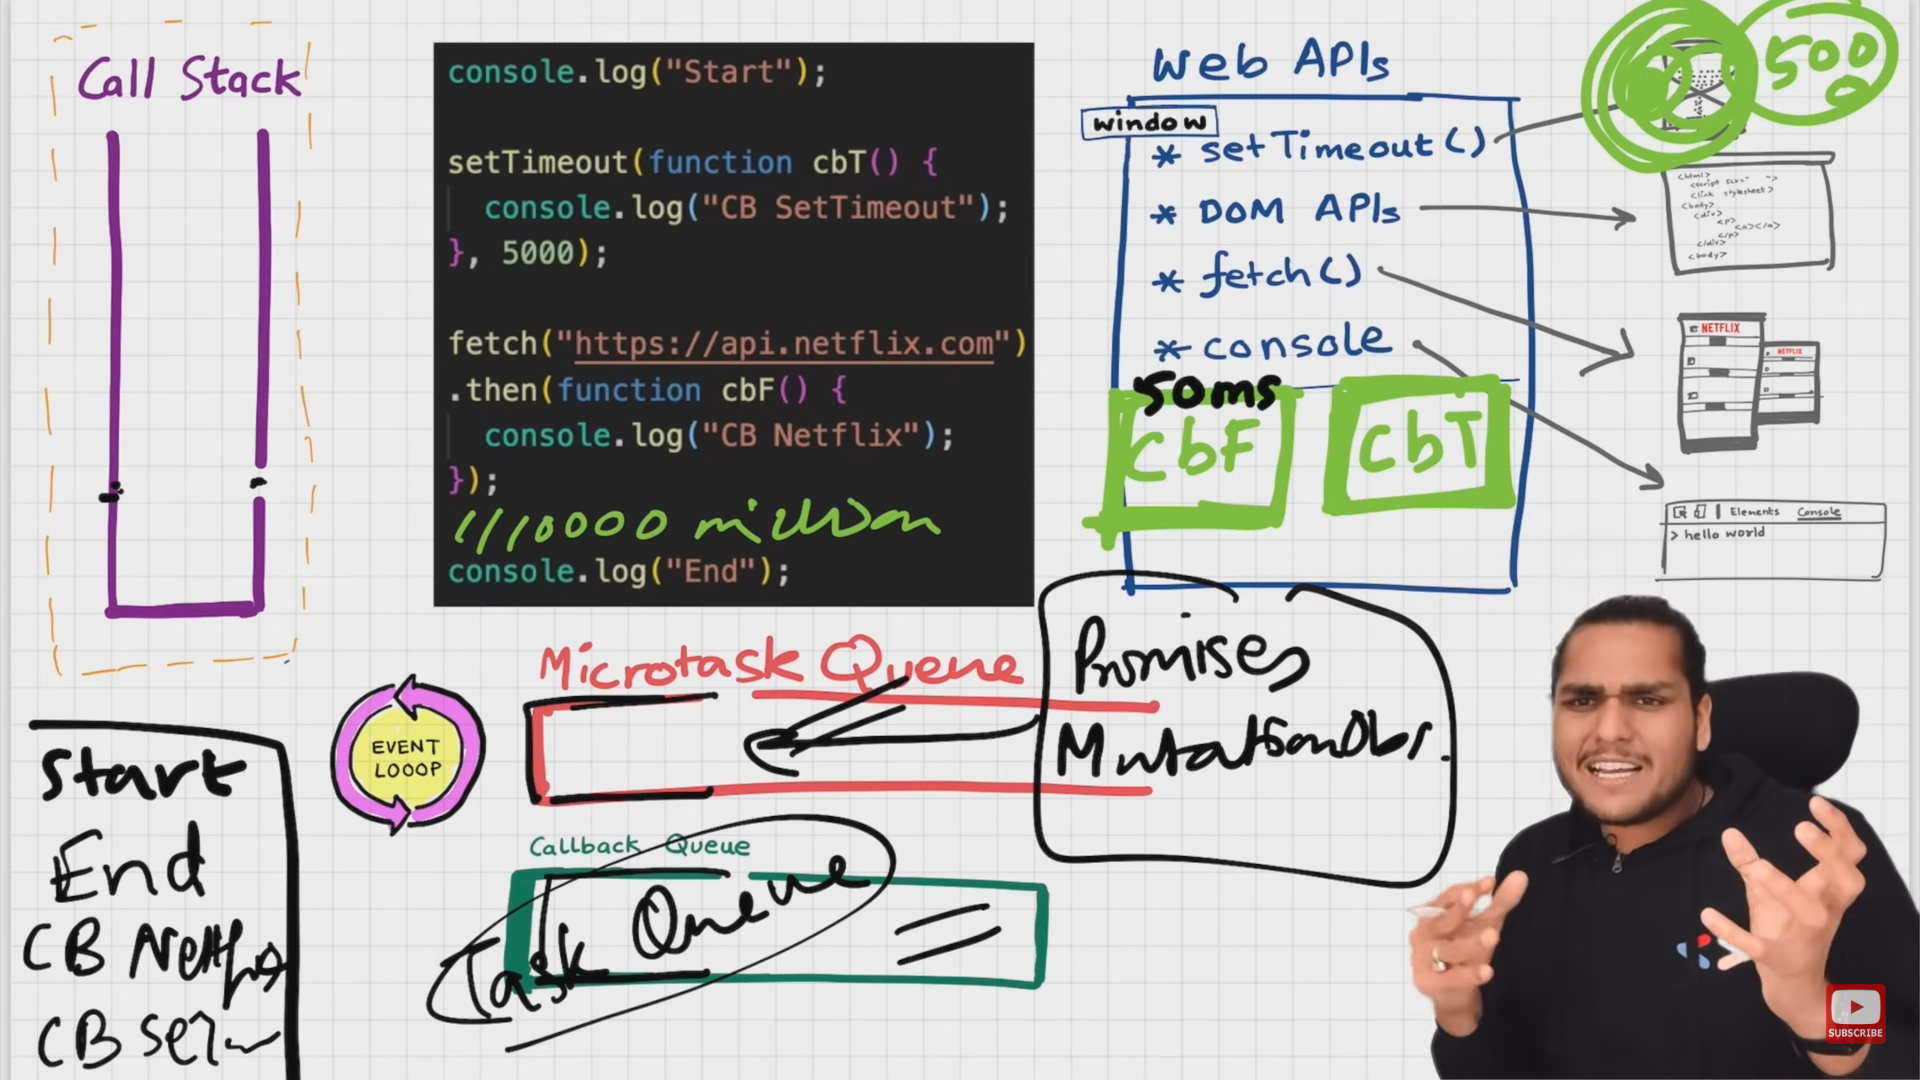 Call Stack
console.log("Start");
setTimeout(function cbT() {
console.log("CB SetTimeout");
}, 5000);
fetch("https://api.netflix.com")
.then(function cbF() {
console.log("CB Netflix");
});
console.log("End");
Web APIs
window
* setTimeout()
* DOM APIs
* fetch()
* console
50ms
CbF
CbT
500
0
<html>
<link stylesheet>
<body>
<div>
<p>
<a></a>
</p>
</div>
<body>
NETFLIX
NETFLIX
Elements Console
> hello world
Microtask Queue
Promises
EVENT
LOOOP
Callback Queue
Task Queue
Start
End
CB
CB
SUBSCRIBE